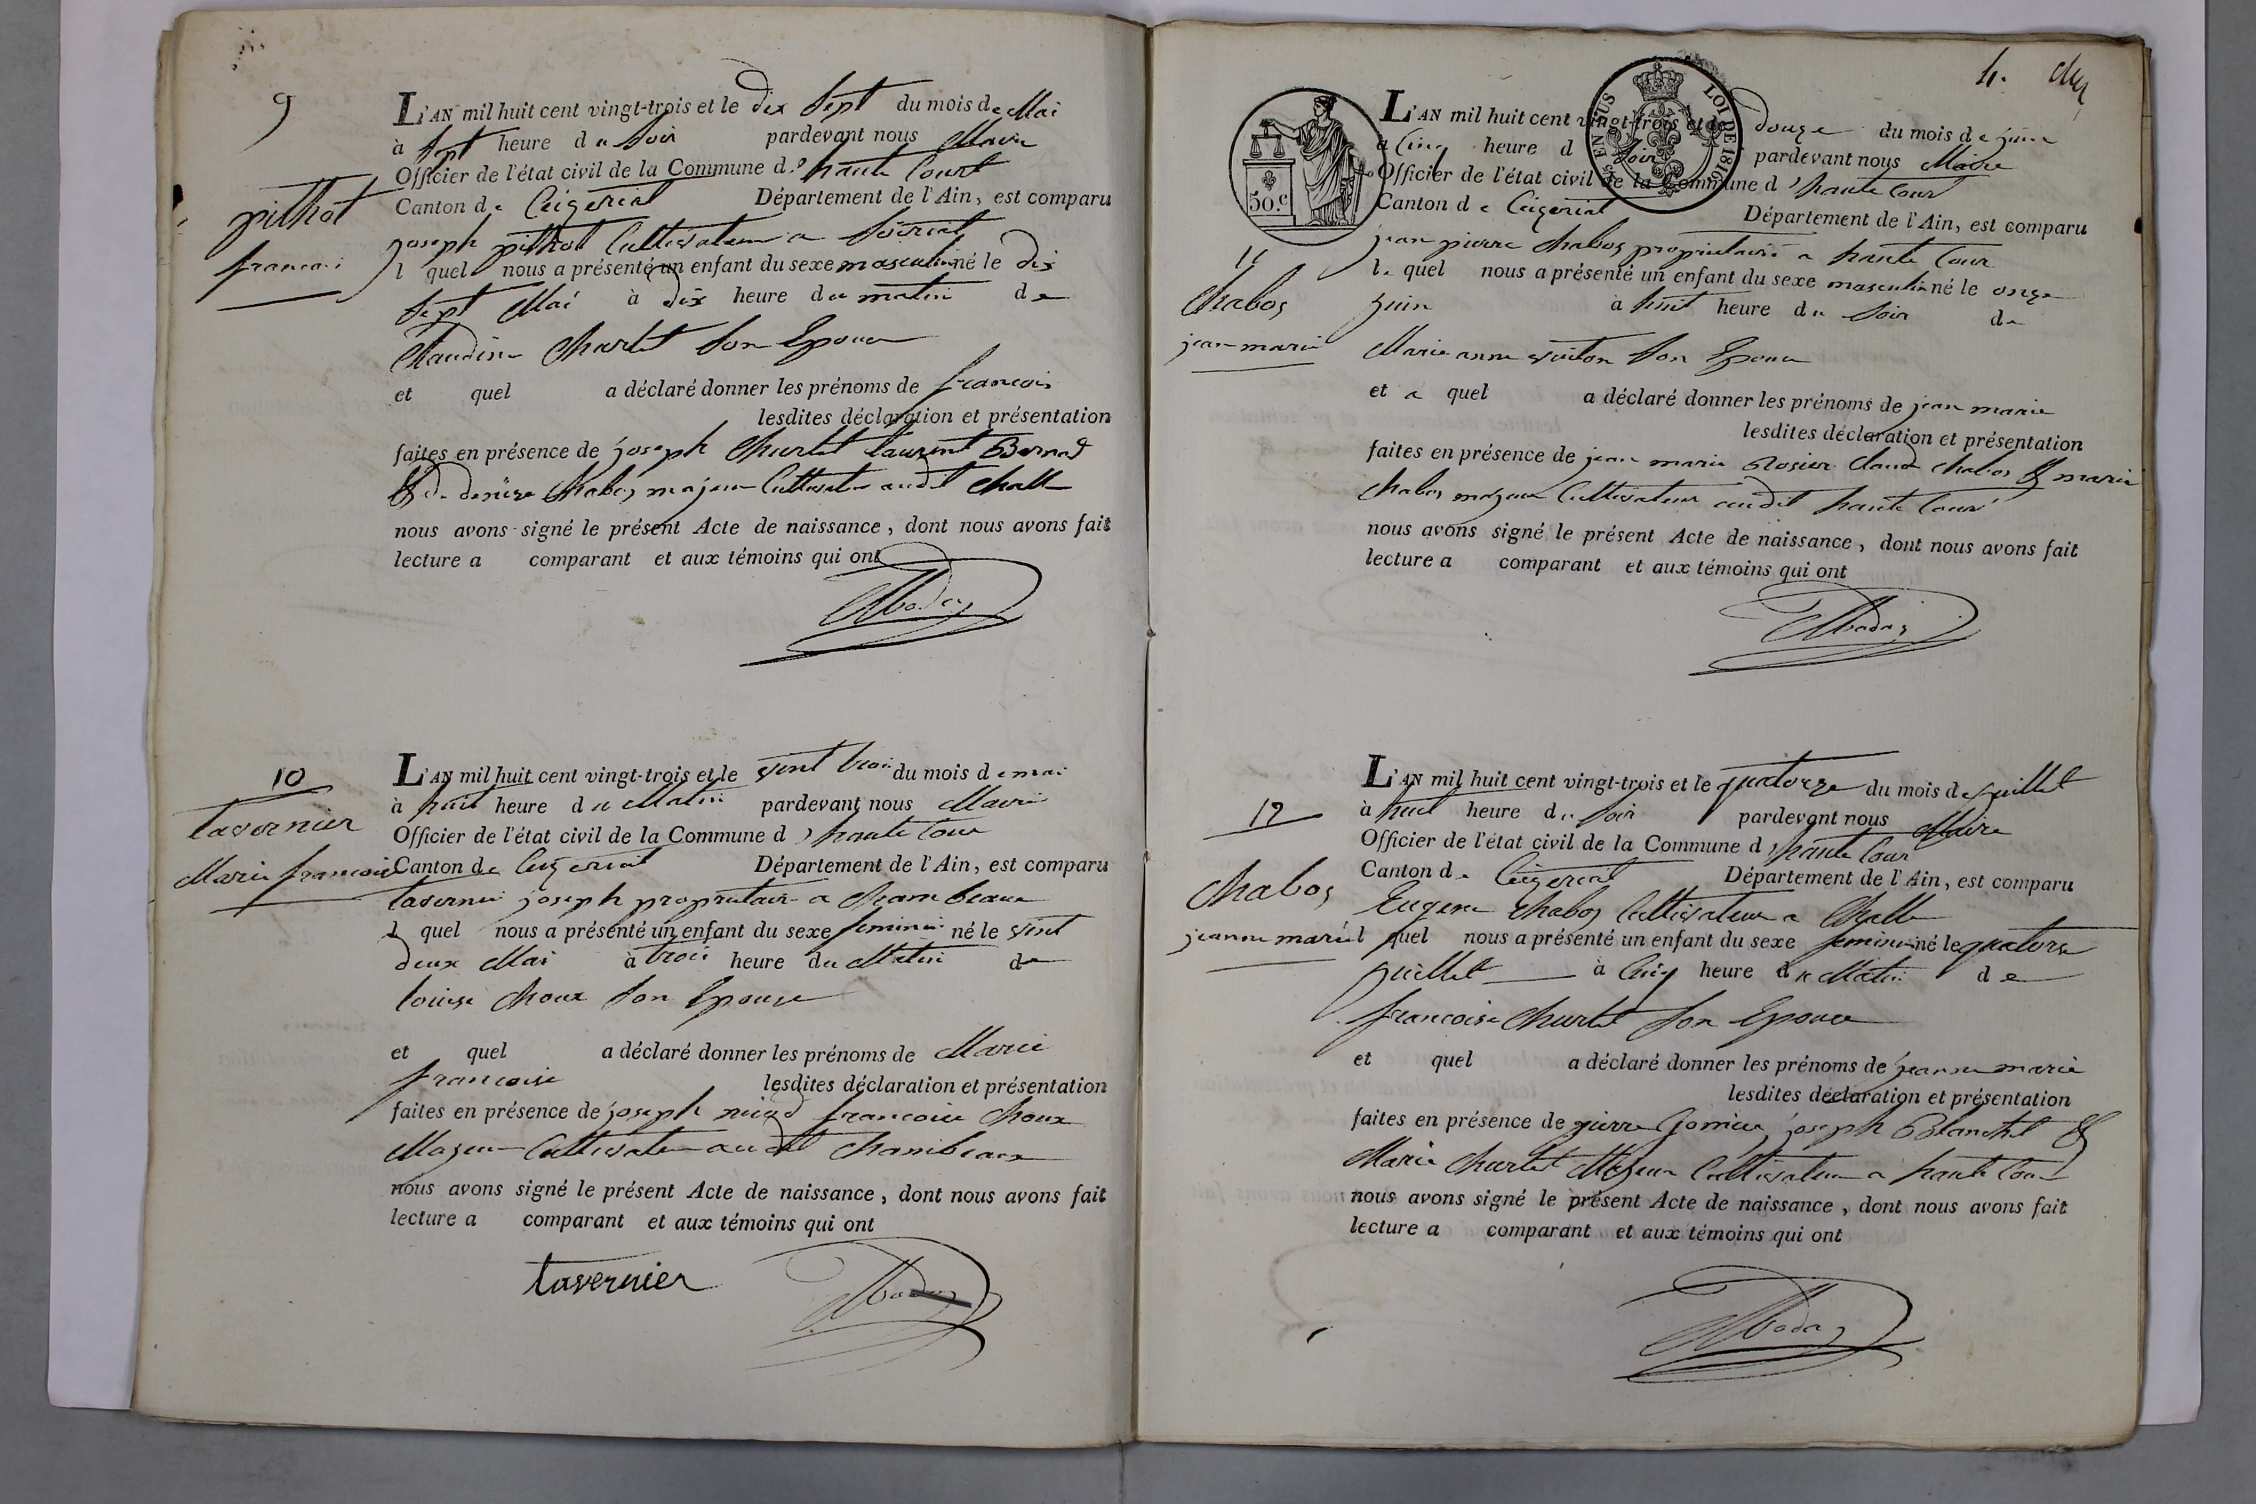 9
pithot
francois
L'AN mil huit cent vingt-trois et le dix sept du mois de Mai
à sept heure du soir pardevant nous Maire
Officier de l'état civil de la Commune d'haute Court
Canton de Ceizeriat Département de l'Ain, est comparu
joseph pithot Cultivateur a
l quel nous a présenté un enfant du sexe masculin né le dix
sept Mai à dix heure du matin de
Claudine Charlet son Epouse
et quel a déclaré donner les prénoms de francois
lesdites déclaration et présentation
faites en présence de joseph Churlet laurent Bernad
& de denise Chabos majeur Cultivateur audit Challe
nous avons signé le présent Acte de naissance, dont nous avons fait
lecture a comparant et aux témoins qui ont
10
tavernier
Marie francoise
L'AN mil huit cent vingt-trois et le vint trois du mois de mai
à huit heure du Matin pardevant nous Maire
Officier de l'état civil de la Commune d'haute Cour
Canton de Ceizeriat Département de l'Ain, est comparu
tavernier joseph proprietaire a Chambeaux
l quel nous a présenté un enfant du sexe feminin né le vint
deux Mai à trois heure du Matin de
louise Choux son Epouse
et quel a déclaré donner les prénoms de Marie
francoise lesdites déclaration et présentation
faites en présence de joseph francoise Choux
Majeur Cultivateur audit Chambeaux
nous avons signé le présent Acte de naissance, dont nous avons fait
lecture a comparant et aux témoins qui ont
tavernier
4.
50.c
EN SUS
LOI DE 1816
11
Chabos
jean marie
L'AN mil huit cent vingt-trois et le douze du mois de juin
à Cinq heure d soir pardevant nous Maire
Officier de l'état civil de la Commune d'haute Cour
Canton de Ceizeriat Département de l'Ain, est comparu
jean pierre Chabos proprietaire a haute Cour
le quel nous a présenté un enfant du sexe masculin né le onze
juin à huit heure du soir de
Marie anne son Epouse
et a quel a déclaré donner les prénoms de jean marie
lesdites déclaration et présentation
faites en présence de jean marie Rosier Claude Chabos & marie
Chabos majeur Cultivateur audit haute Cour
nous avons signé le présent Acte de naissance, dont nous avons fait
lecture a comparant et aux témoins qui ont
12
Chabos
jeanne marie
L'AN mil huit cent vingt-trois et le quatorze du mois de juillet
à huit heure du soir pardevant nous Maire
Officier de l'état civil de la Commune d'haute Cour
Canton de Ceizeriat Département de l'Ain, est comparu
Eugene Chabos Cultivateur a Challe
l quel nous a présenté un enfant du sexe feminin né le quatorze
juillet à Cinq heure du Matin de
francoise Churlet son Epouse
et quel a déclaré donner les prénoms de jeanne marie
lesdites déclaration et présentation
faites en présence de pierre joseph Blanchet &
Marie Churlet Majeur Cultivateur a haute Cour
nous avons signé le présent Acte de naissance, dont nous avons fait
lecture a comparant et aux témoins qui ont